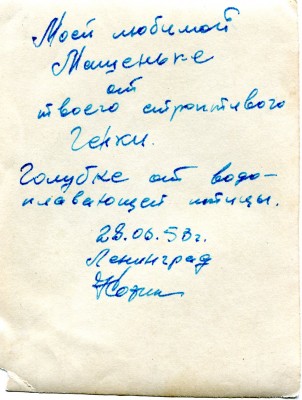 Моей любимой
Машеньке
от
твоего строптивого
Генки.
Голубке от водо-
плавающей птицы.
28.06.58г.
Ленинград